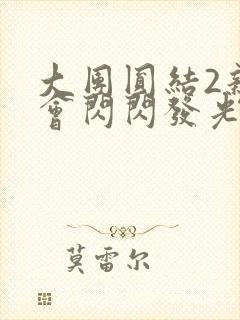 大團圓結2新
會閃閃發光
莫雷尔